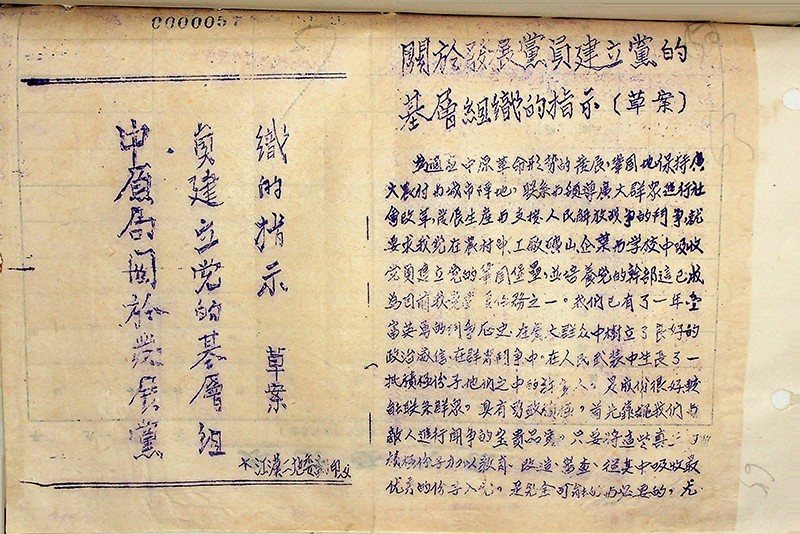 0000057
中原局關於發展黨
員建立党的基層組
織的指示 草案
關於發展黨員建立黨的
基層組織的指示(草案)
為適應中原革命形势的發展,鞏固地保持廣
大農村与城市陣地,联系与領導廣大群眾進行社
會改革發展生産与支援人民解放战争的鬥争,就
要求我党在農村中,工廠礦山,企業与学校中吸收
党員建立党的鞏固堡壘,並培養党的幹部這已成
為目前我党重要任務之一。我們已有了一年
富的鬥争历史,在廣大群众中樹立了良好的
政治威信,在群眾鬥争中,在人民武装中生長了一
批積極份子他們之中的許多人,是成份很好較
能联系群眾,具有
敵人進行鬥争的宝貴品質。只要將這些真正
積極份子加以教育、改造、審查、從其中吸收最
優秀的份子入党,是完全可能的与必要的。尤